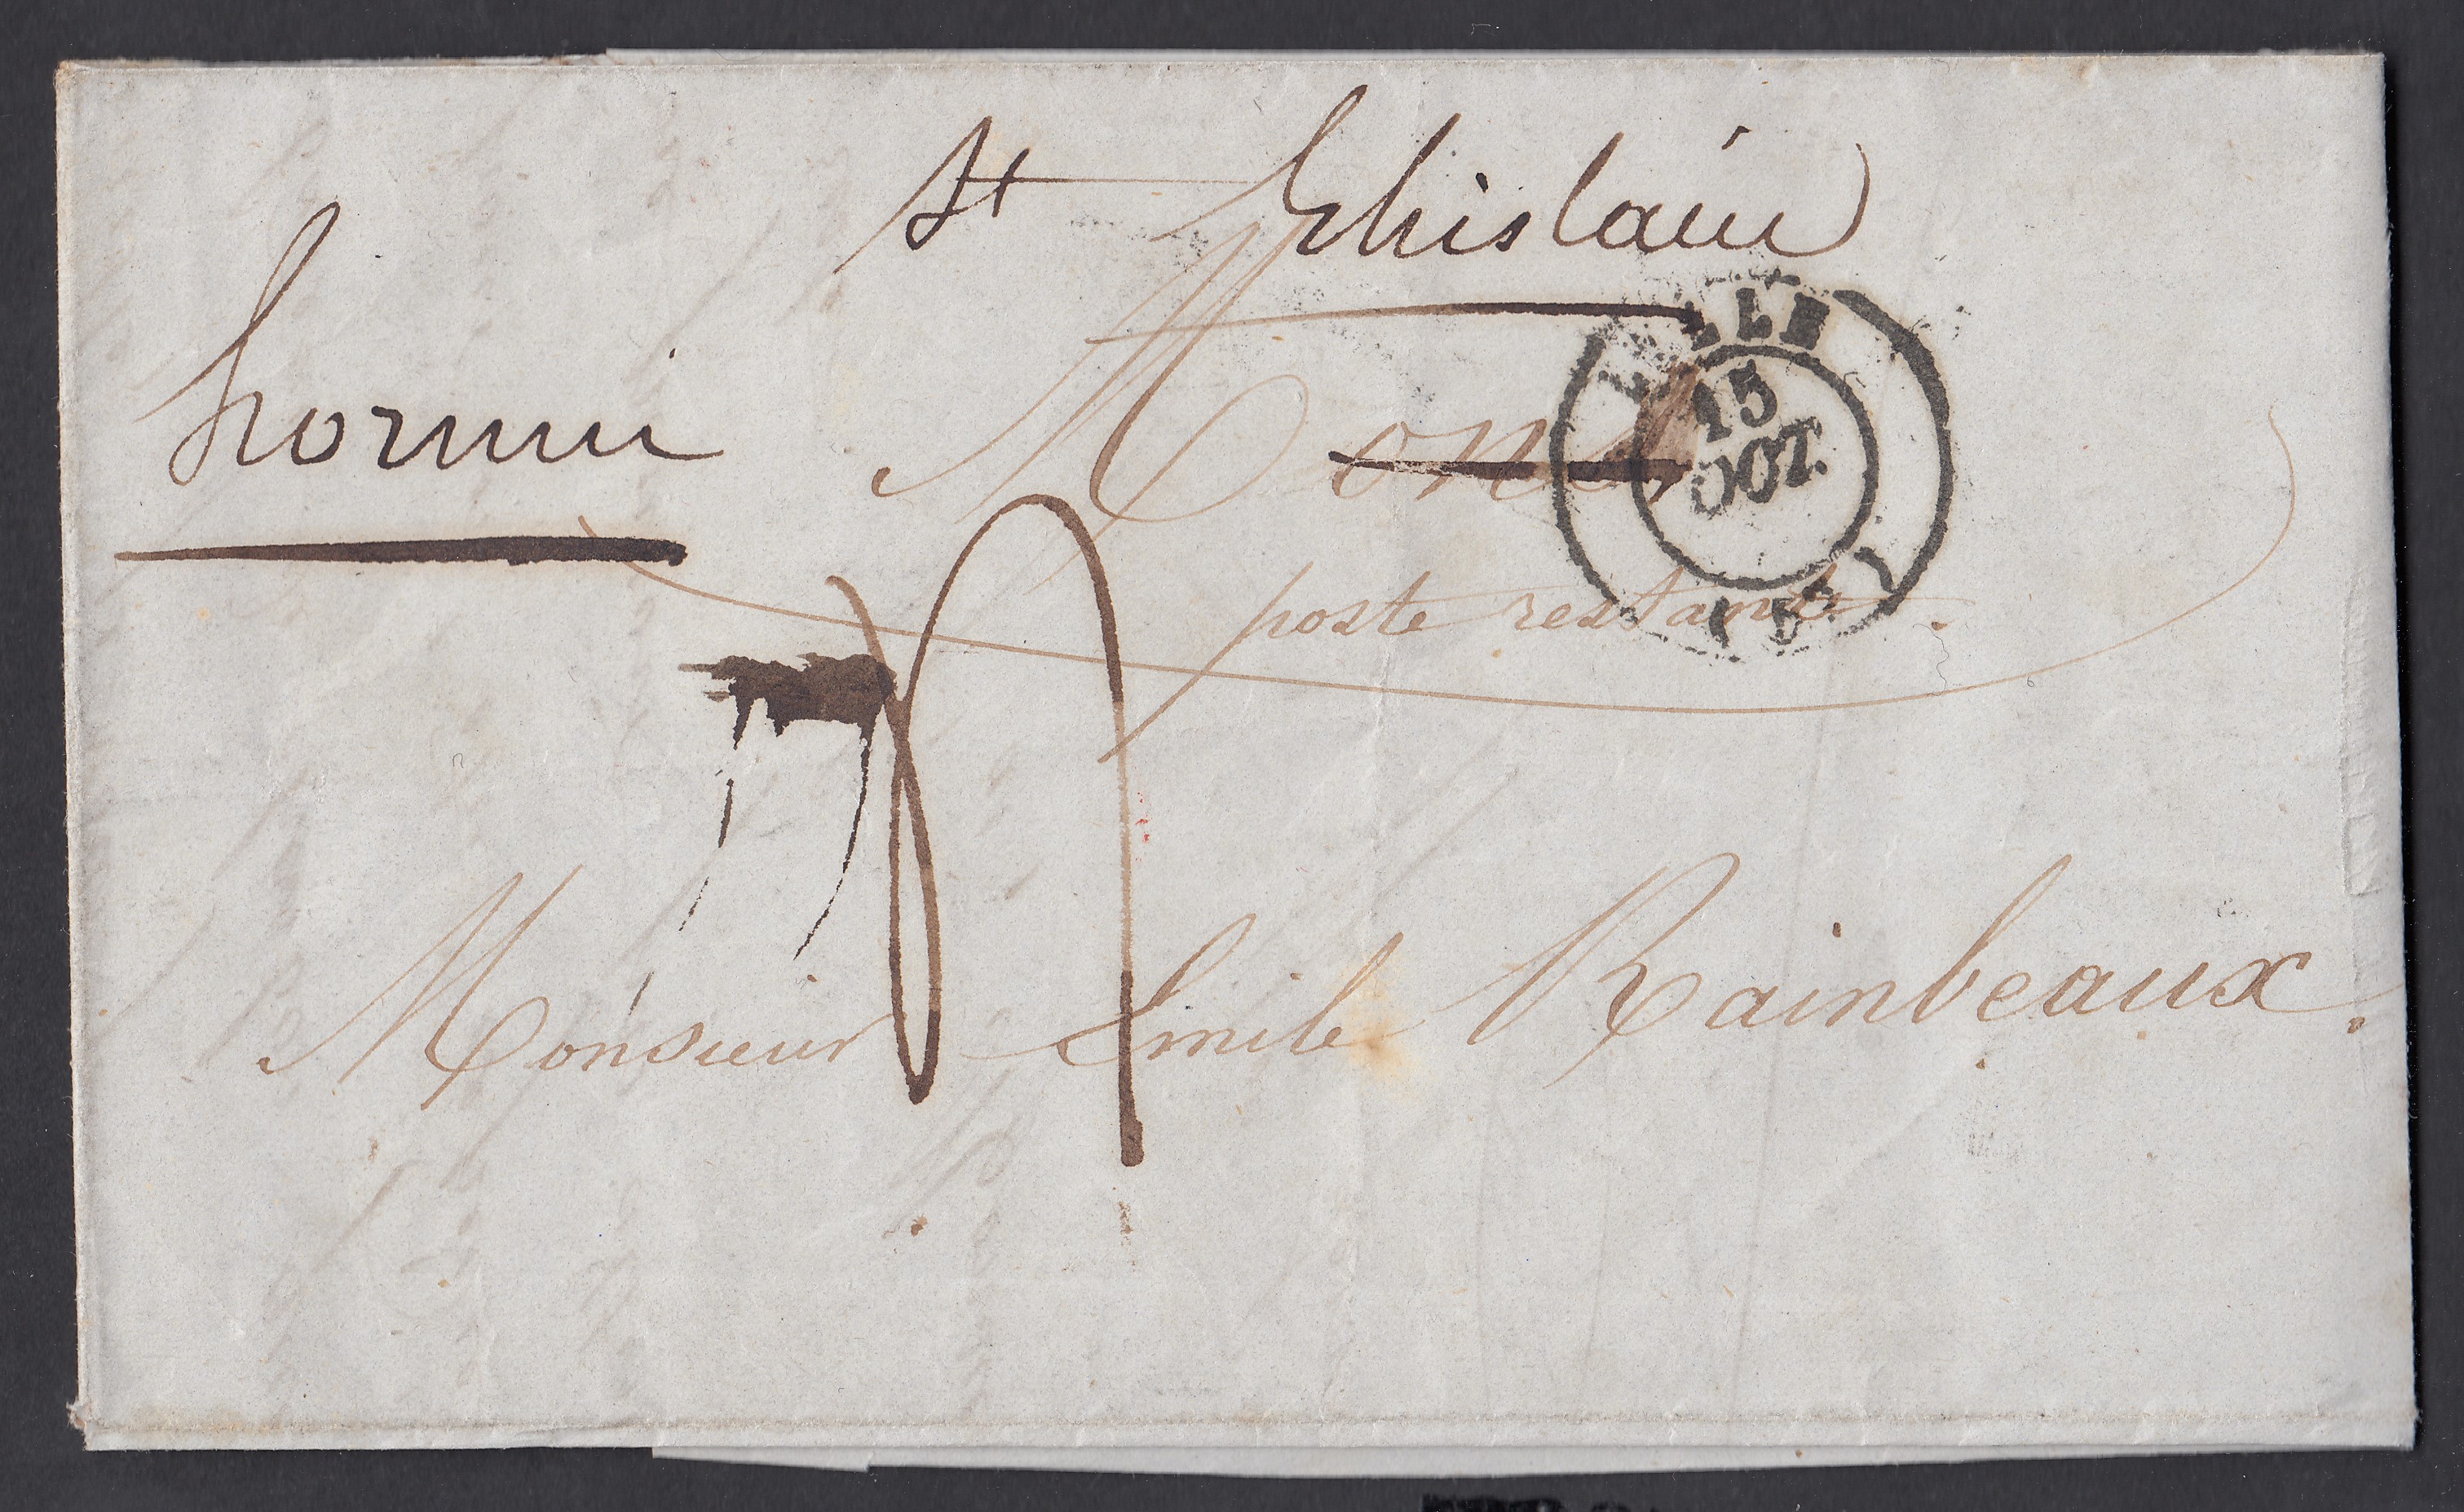 St Ghislain
hornu
Mons
LILLE
15
OCT.
(57)
poste restante.
Monsieur Emile Rainbeaux.